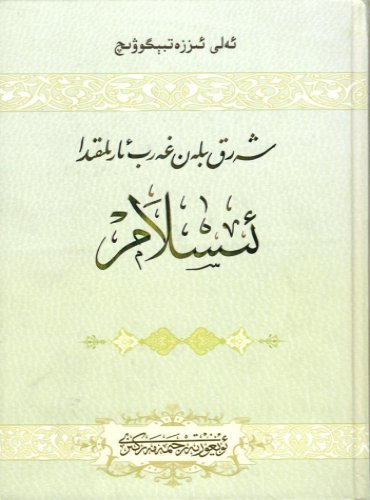 ئەلى ئىززەتبېگوۋىچ
شەرق بىلەن غەرب ئارىلىقىدا
ئىسلام
ئۇيغۇر تەرجىمە مەركىزى